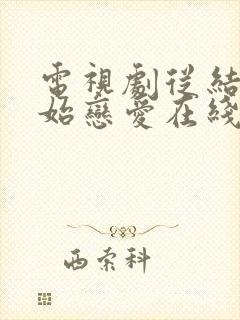 電視劇從結
始戀愛在綫
西索科